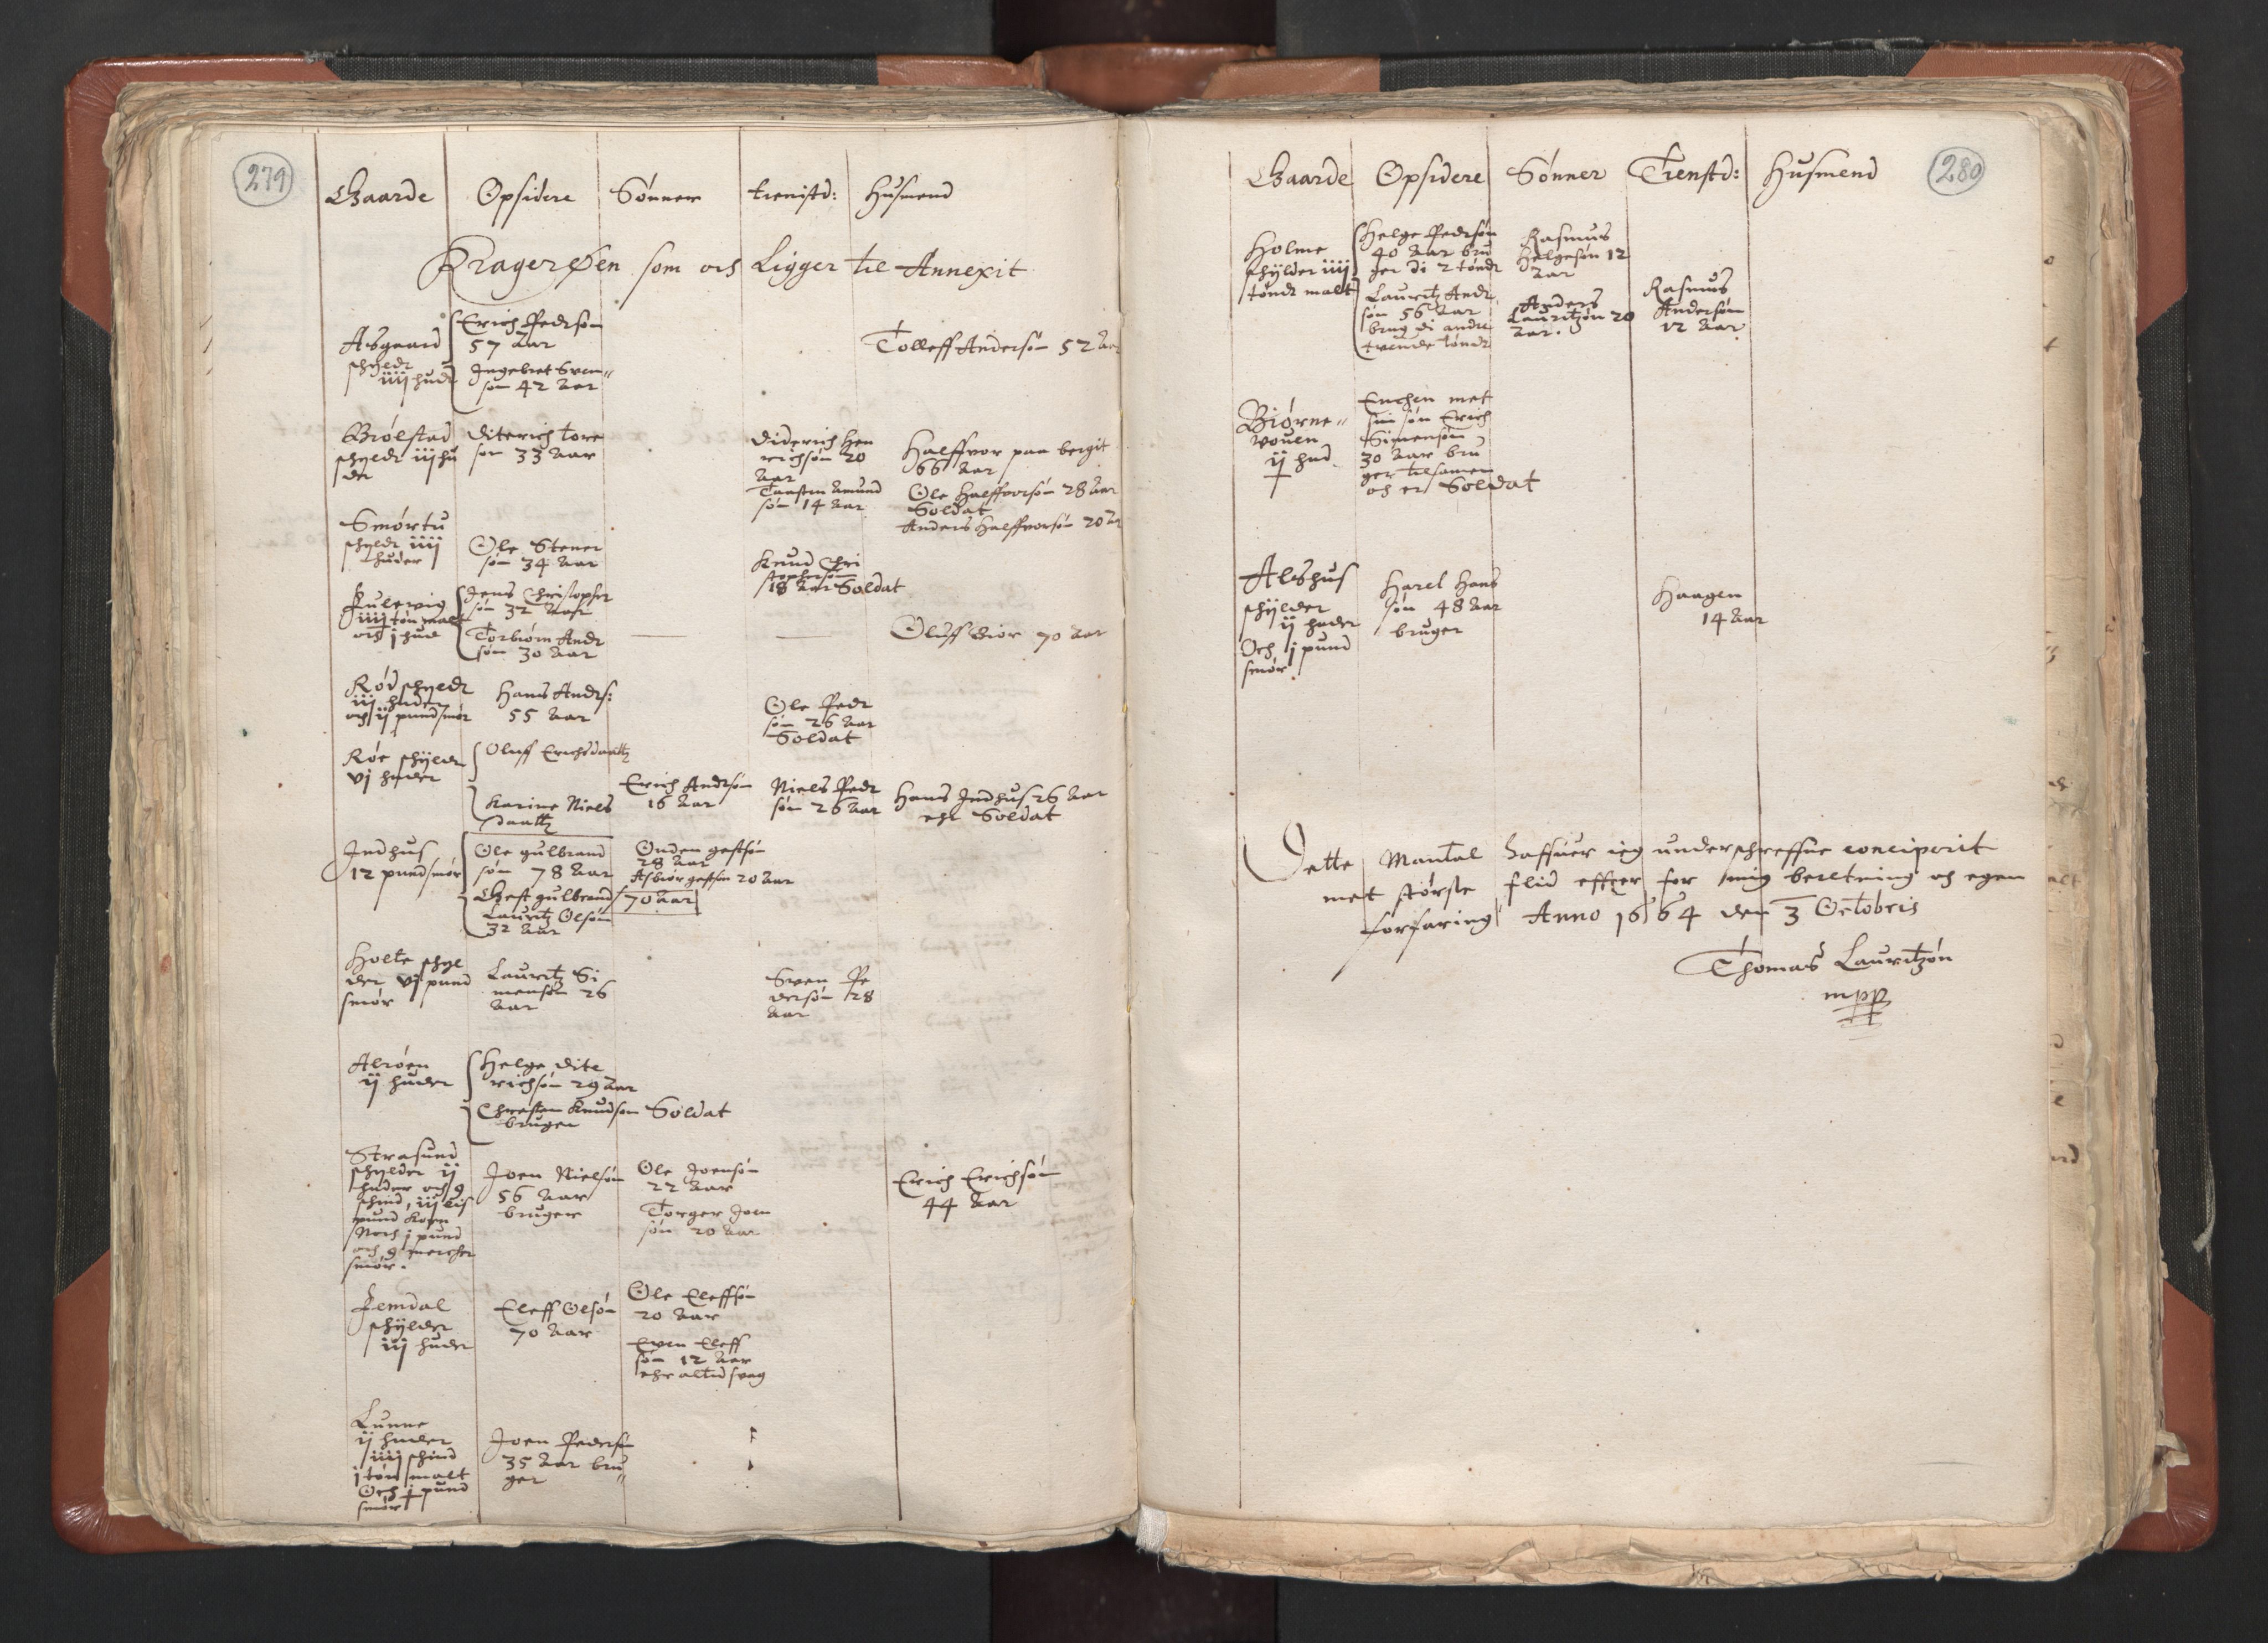 279
Gaarde Opsidere Sønner tienistd: Husmend
Kragerøen som och Ligger til Annexit
Asgaard
schyldr
iiij hudr
Erich Pedrsøn
57 Aar
Ingebret Sven-
søn 42 Aar
Tolleff Andersøn 52 Aar
Biølstad
schyldr iij hu
der
Diterich tore
søn 33 Aar
Diderich Hen
richsøn 20
Aar
Taasten Amund
søn 14 Aar
Halffvor paa bergit
66 Aar
Ole Halffvorsøn 28 Aar
Soldat
Anders Halffvorsøn 20 Aar
Smørtu
schyldr iiij
huder
Ole Stener
søn 34 Aar
Knud Chri
stophersøn
18 Aar Soldat
Fulevig
iiij tøn malt
och j hud
Jens Christopher
søn 32 Aar
Torbiørn Andr
søn 30 Aar
Oluff Dior 70 Aar
Rød schyldr
iij huder
och ij pund smør
Hans Andrs:
55 Aar
Ole Pedr
søn 26 Aar
Soldat
Røe schyldr
vj huder
Oluff Erichsdaattz
Karine Niels
daattz
Erich Andrsøn
16 Aar
Niels Pedr
søn 26 Aar
Hans Indhus 26 Aar
ehr Soldat
Indhus
12 pund smør
Ole gulbrand
søn 78 Aar
Gest gulbrand 70 Aar
Lauritz Olsøn
32 Aar
Onden gestsøn
28 Aar
Asbiør gestsøn 20 Aar
Holte schyl
der vj pund
smør
Lauritz Si
mensøn 26
Aar
Sven Pe
dersøn 28
Aar
Alrøen
ij huder
Helge Dite
richsøn 29 Aar
Christen Knudsøn Soldat
bruger
Strasund
schylder ij
huder och 9
schind, iij lis
pund Korn
Noch j pund
och 9 mercher
smør.
Joen Nielsøn
56 Aar
bruger
Ole Joensøn
22 Aar
Torger Joen
søn 20 Aar
Erich Erichsøn
44 Aar
Femdal
schylder
iij huder
Eleff Olsøn
70 Aar
Ole Eleffsøn
20 Aar
Even Eleff
søn 12 Aar
ehr altid svag
Lunne
ij huder
iiij schind
j tøn malt
Och j pund
smør
Joen Pedersøn
35 Aar bru
ger
280
Gaarde Opsidere Sønner Tienstd: Husmend
Holme
schylder iiij
tøndr malt
Helge Pedrsøn
40 Aar bru
ger di 2 tøndr
Lauritz Andr
søn 56 Aar
brug di andre
tvende tøndr
Rasmus
Helgesøn 12
Aar
Anders
Lauritzøn 20
Aar.
Rasmus
Andersøn
12 Aar
Biørne-
vouen
ij hud
Enchen met
sin søn Erich
Simensøn
30 Aar bru
ger tilsamen
och er Soldat
Alshus
schylder
ij huder
Och j pund
smør.
Harel Hans
søn 48 Aar
bruger
Haagen
14 Aar
Dette Mantal haffuer ieg underschreffne conciperit
met største flid effter for mig beretning och egen
forfaring Anno 1664 den 3 Octobris
Thomas Lauritzøn
mpp